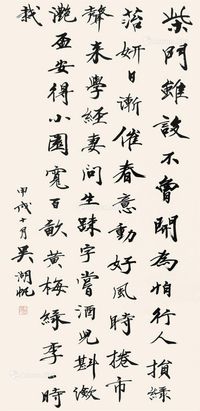 柴門雖設不曾開為怕行人損綠
苔妍日漸催春意動好風時捲市
聲来學經妻問生疎字嘗酒兒斟瀲
灧盃安得小園寬百畝黃梅綠李一時
栽
甲戌十月吳湖帆